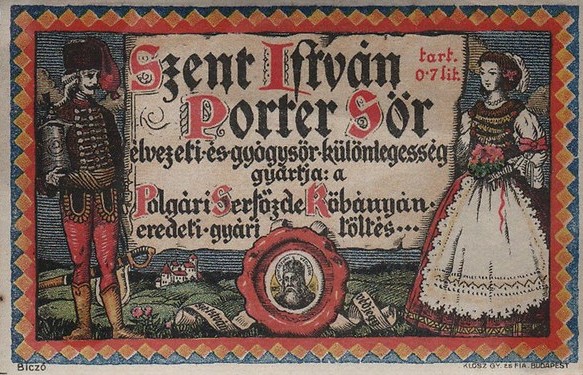 Szent István
tart.
0·7 lit.
Porter Sör
élvezeti·és·gyógysör·különlegesség
gyártja: a
Polgári Serfőzde Kőbányán·
eredeti·gyári töltés...
Biczó
KLÖSZ GY. ÉS FIA. BUDAPEST